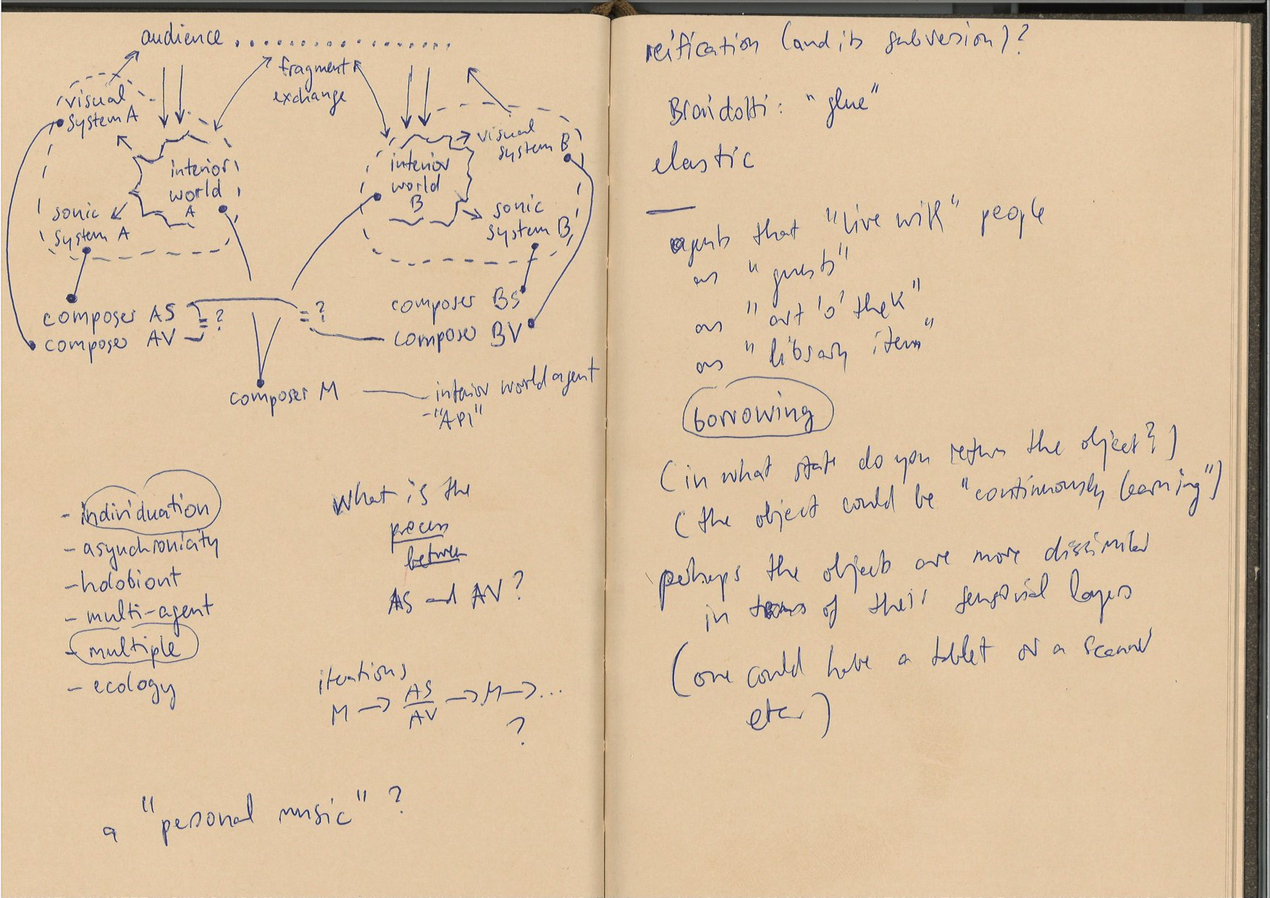 audience . . . . . . . . . . . . . . .
fragment
exchange
visual
system A
interior
world
A
sonic
system A
visual
system B
interior
world
B
sonic
system B
composer AS
composer AV
= ?
= ?
composer BS
composer BV
composer M
interior world agent
- "API"
- individuation
- asynchronicity
- holobiont
- multi-agent
- multiple
- ecology
What is the
process
between
AS and AV?
iterations
M → AS/AV → M → ...
?
a "personal music" ?
reification (and its subversion)?
Braidotti: "glue"
elastic
—
agents that "live with" people
as "guests"
as "art 'o' thek"
as "library item"
borrowing
(in what state do you return the object?)
(the object could be "continuously learning")
perhaps the object are more dissimilar
in terms of their sensorial layers
(one could have a tablet or a scanner
etc.)